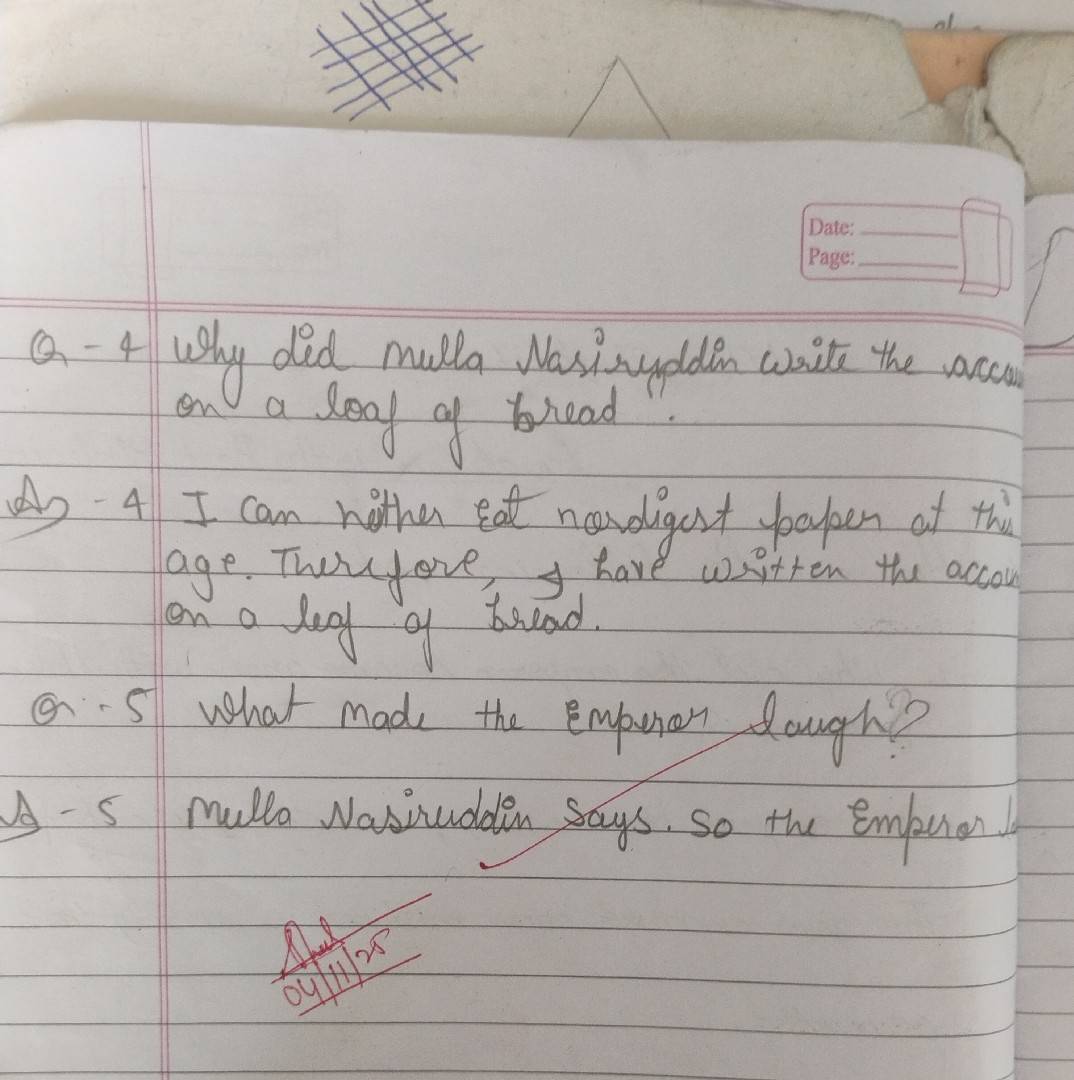 Date:
Page:
Q - 4 Why did mulla Nasiruddin write the accou
on a loaf of bread".
As - 4 I can nither eat nordigest paper at this
age. Therefore, I have written the accou
on a leaf of bread.
Q. - 5 What made the Emperor laugh?
A - 5 Mulla Nasiruddin Says. So the Emperor
04/11/25